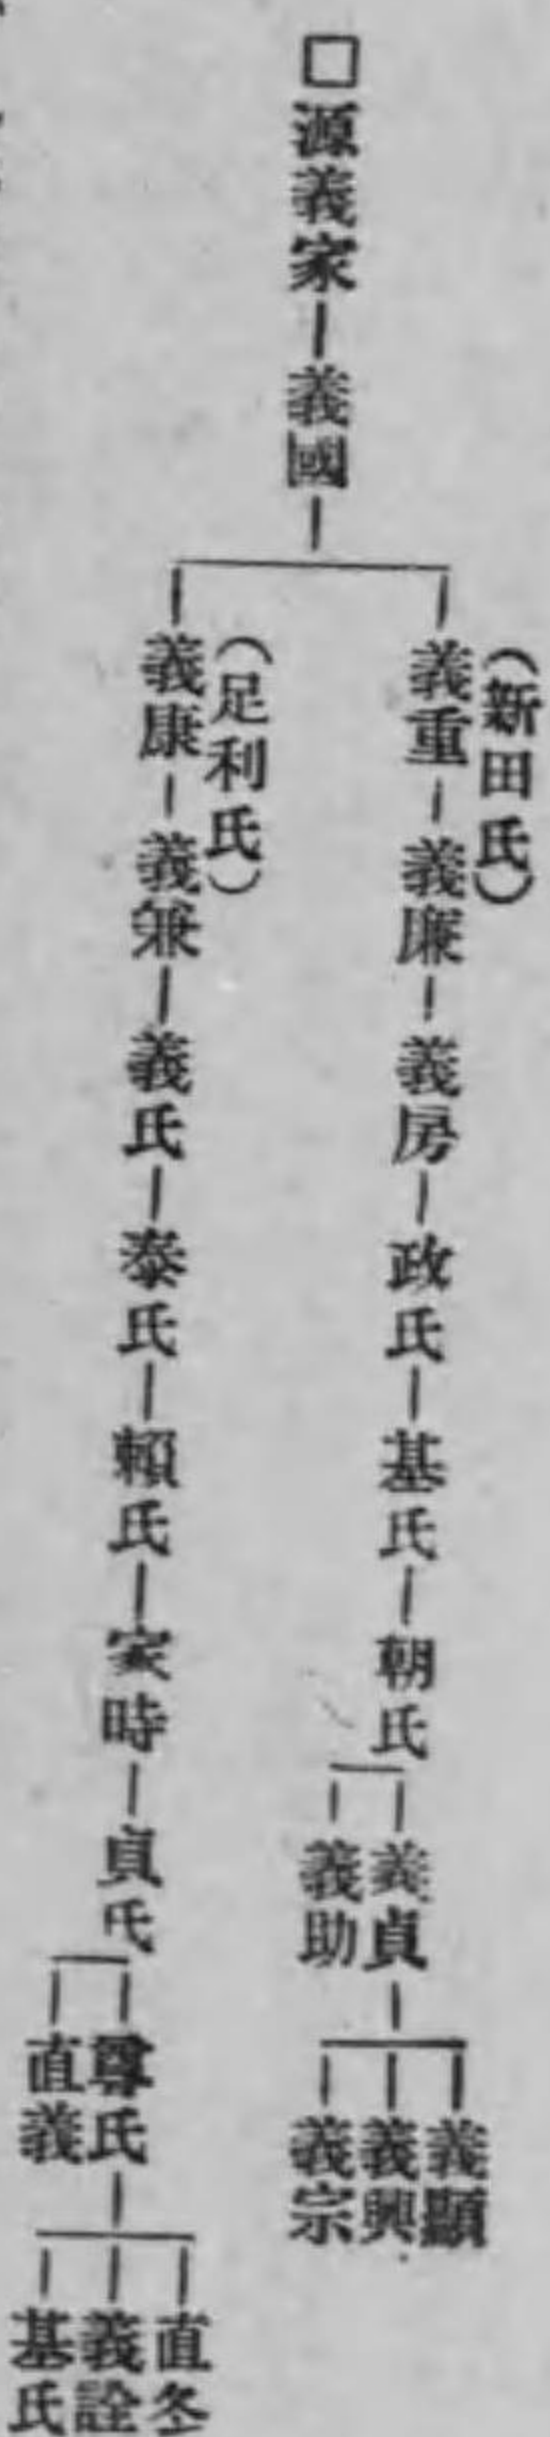 □源義家―義國―
(新田氏)
義重―義廉―義房―政氏―基氏―朝氏
義貞―
義助
義顯
義興
義宗
(足利氏)
義康―義兼―義氏―泰氏―賴氏―家時―貞氏
尊氏―
直義
直冬
義詮
基氏